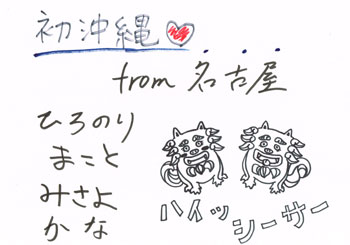 初沖縄
from 名古屋
ひろのり
まこと
みさよ
かな
ハイッ
シーサー